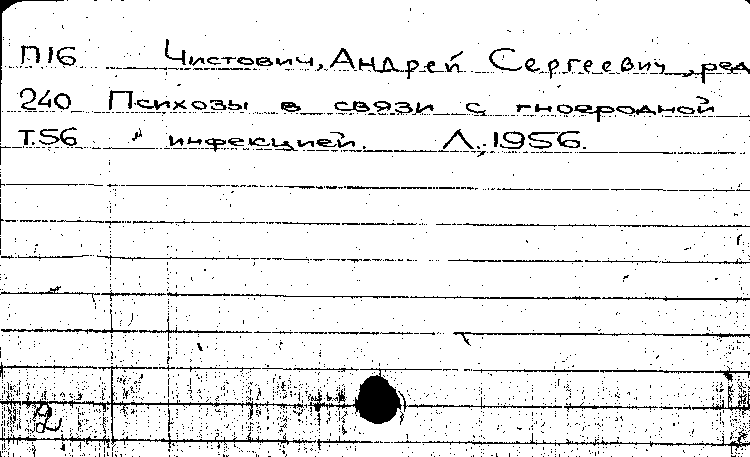 П16 Чистович, Андрей Сергеевич, ред
240 Психозы в связи с гноеродной
Т.56 инфекцией. Л., 1956.
2